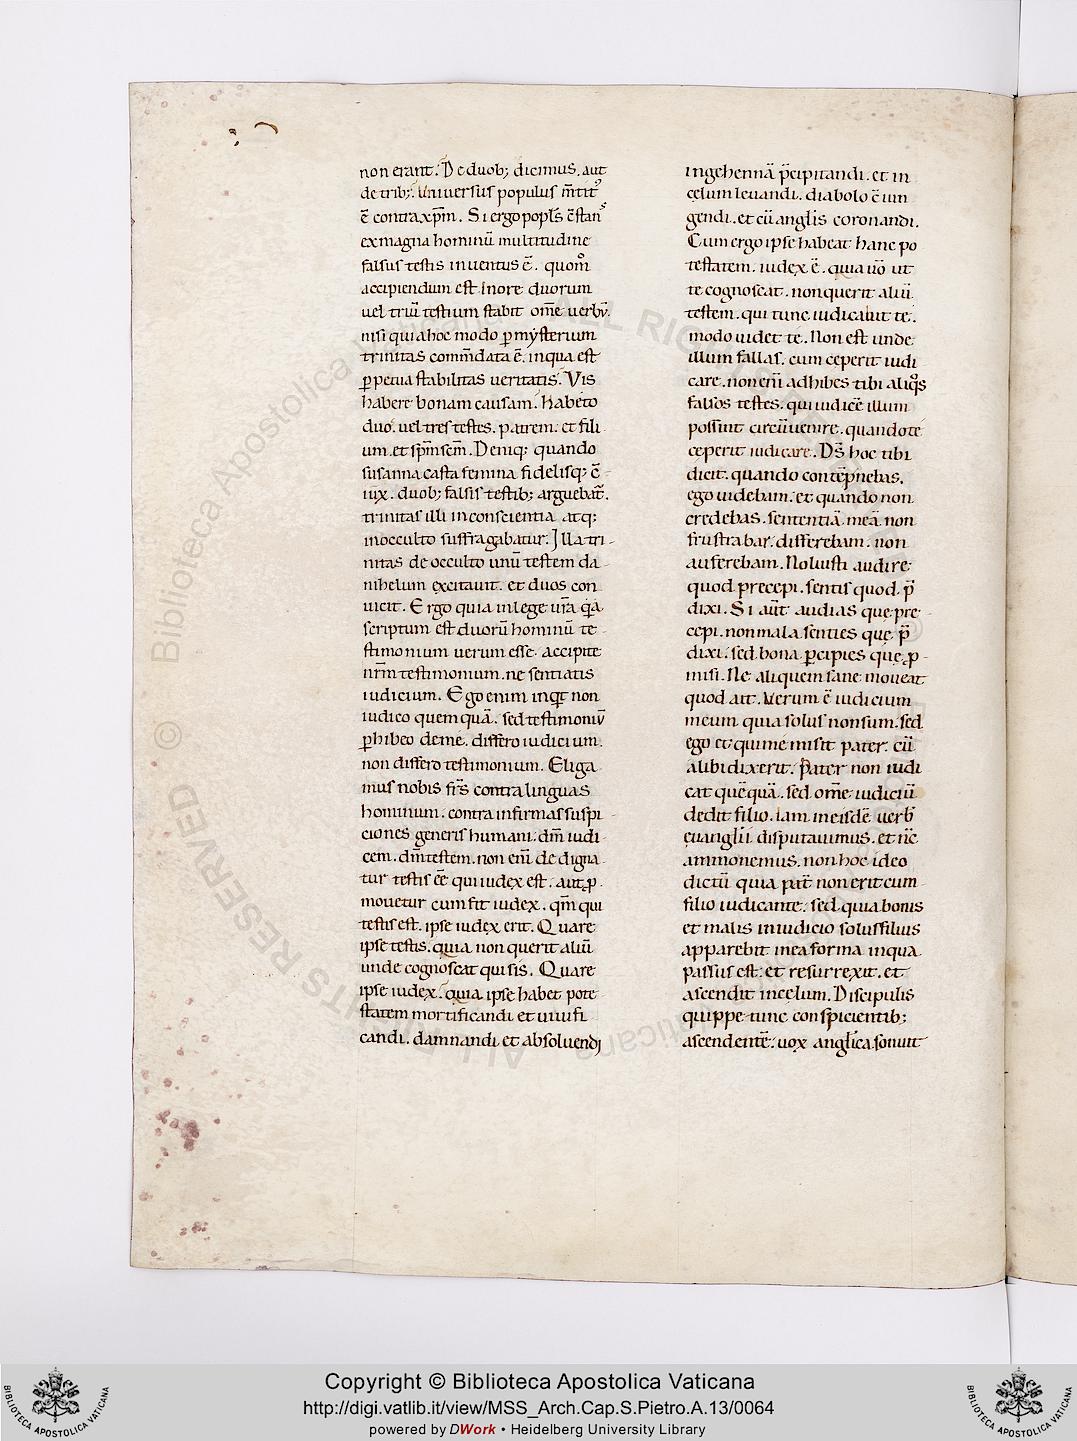 non erant. De duob; dicimus. aut
de trib;. Universus populus m̄titꝰ
ē contra xp̄m. Si ergo popl̅s ē stanˢ
ex magna hominū multitudine
falsus testis inventus ē. quom̊
accipiendum est. Inore duorum
uel triū testium stabit om̄e uerbū.
nisi quia hoc modo ꝑ mysterium
trinitas com̄data ē. in qua est
ꝑpetua stabilitas ueritatis. Vis
habere bonam causam. habeto
duo. uel tres testes. patrem. et fili
um. et sp̄m sc̄m. Deniq; quando
susanna casta femina fidelisq; ē
iux. duob; falsis testib; arguebat̄.
trinitas illi in conscientia atq;
in occulto suffragabatur. Illa tri-
nitas de occulto unū testem da
nihelum excitauit. et duos con
uicit. Ergo quia in lege ur̄a
scriptum est duorū hominū te
stimonium uerum esse. accipite
nr̄m testimonium. ne sentiatis
iudicium. Ego enim inqt non
iudico quem quā. sed testimoniū
ꝑhibeo de me. differo iudicium.
non differo testimonium. Eliga
mus nobis fr̄s contra linguas
hominum. contra infirmas suspi
ciones generis humani. dm̄ iudi
cem. dm̄ testem. non eni̅ de digna
tur testis ēē qui iudex est. aut ꝓ
mouetur cum fit iudex. qm̄ qui
testis est. ipse iudex erit. Quare
ipse testis. quia non querit aliū
unde cognoscat qui sis. Quare
ipse iudex. quia ipse habet pote
statem mortificandi et uiuifi
candi. damnandi et absoluendi
in gehennā p̄cipitandi. et in
celum leuandi. diabolo ē iun
gendi. et cū angl̅is coronandi.
Cum ergo ipse habeat hanc po
testatem. iudex ē. quia uō ut
te cognoscat. non querit aliū
testem. qui tunc iudicabit te.
modo uidet te. Non est unde
illum fallas. cum ceperit iudi
care. non eni̅ adhibes tibi aliqͦs
falsos testes. qui iudicē illum
possint circūuenire. quando te
ceperit iudicare. Ds̄ hoc tibi
dicit. quando contēpnebas.
ego uidebam. et quando non
credebas. sententiā meā non
frustrabar. differebam. non
auferebam. Noluisti audire
quod precepi. sentis quod p̄
dixi. Si aūt audias que pre-
cepi. non mala senties que p̄
dixi. sed bona ꝑcipies que ꝓ-
misi. Ne aliquem sane moueat
quod ait. Verum ē iudicium
meum quia solus non sum. sed
ego et qui me misit pater. cū
alibi dixerit. Pater non iudi
cat quēquā. sed om̄e iudiciū
dedit filio. Iam in eisdē uerb̄
euangl̅ii disputauimus. et nc̄
ammonemus. non hoc ideo
dictū quia pat̄ non erit cum
filio iudicante. sed quia bonis
et malis in iudicio solus filius
apparebit in ea forma in qua
passus est. et resurrexit. et
ascendit in celum. Discipulis
quippe tunc conspicientib;
ascendentē. uox angl̅ica sonuit
Copyright © Biblioteca Apostolica Vaticana
http://digi.vatlib.it/view/MSS_Arch.Cap.S.Pietro.A.13/0064
powered by DWork • Heidelberg University Library